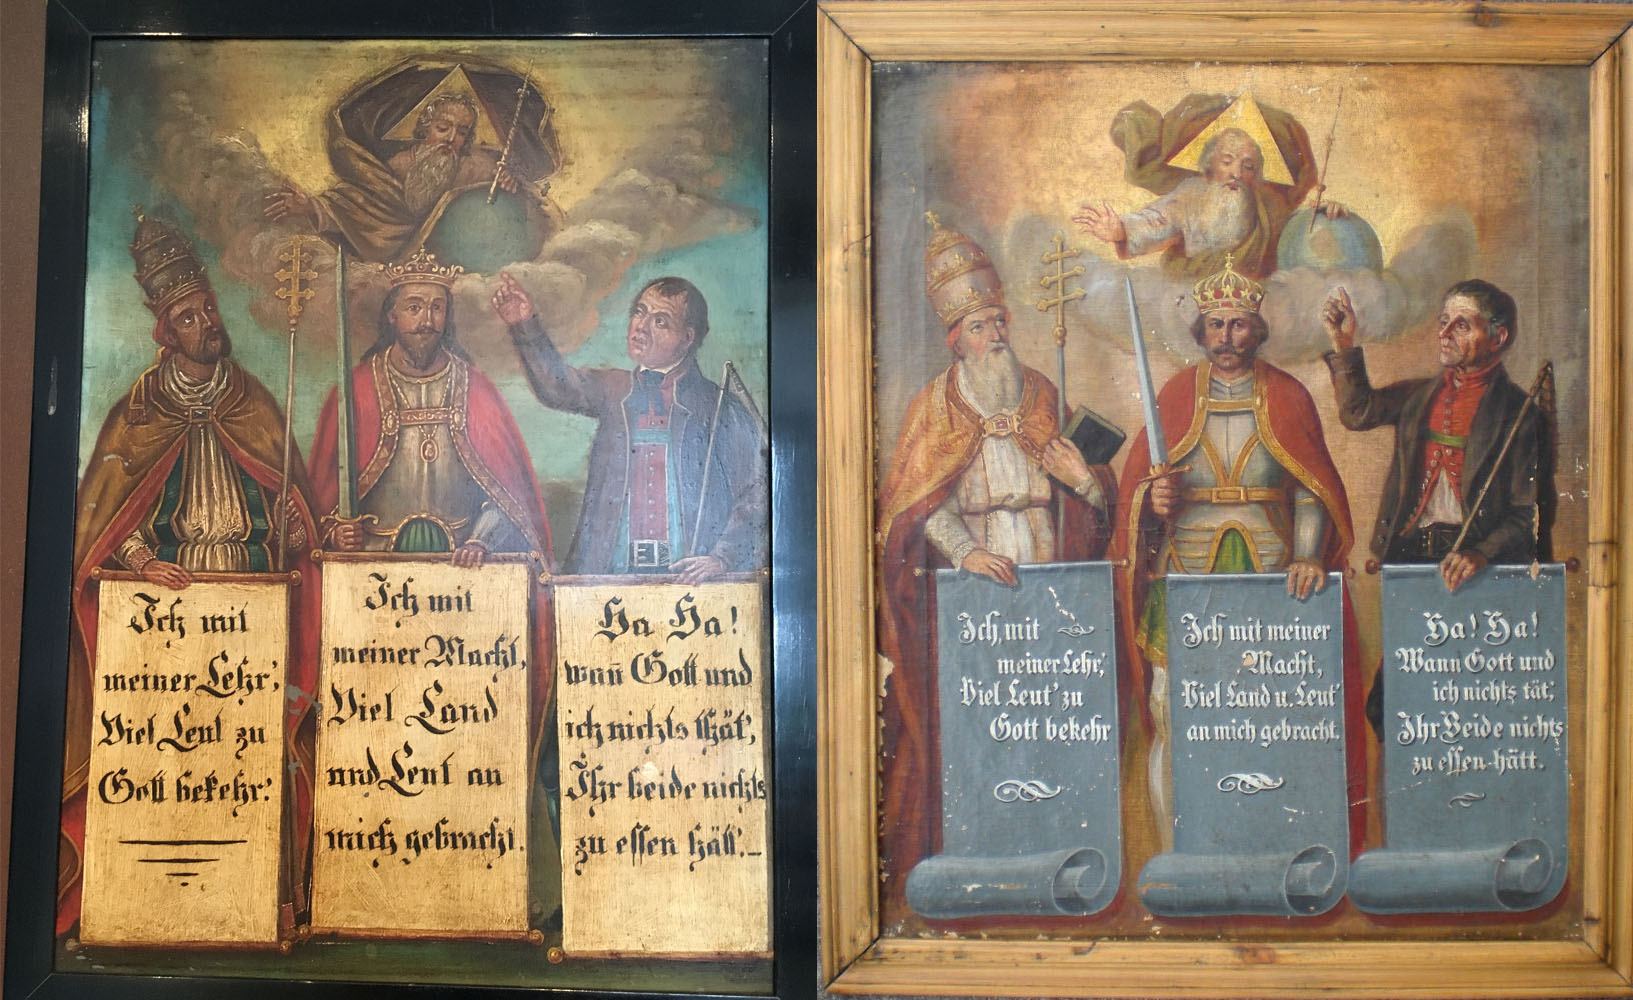 Ich mit
meiner Lehr,'
Viel Leut zu
Gott bekehr.'
Ich mit
meiner Macht,
Viel Land
und Leut an
mich gebracht.
Ha Ha!
wañ Gott und
ich nichts thät',
Ihr beide nichts
zu essen hätt'.
Ich, mit
meiner Lehr,'
Viel Leut' zu
Gott bekehr
Ich mit meiner
Macht,
Viel Land u. Leut'
an mich gebracht.
Ha! Ha!
Wann Gott und
ich nichts tät,'
Ihr Beide nichts
zu essen hätt.